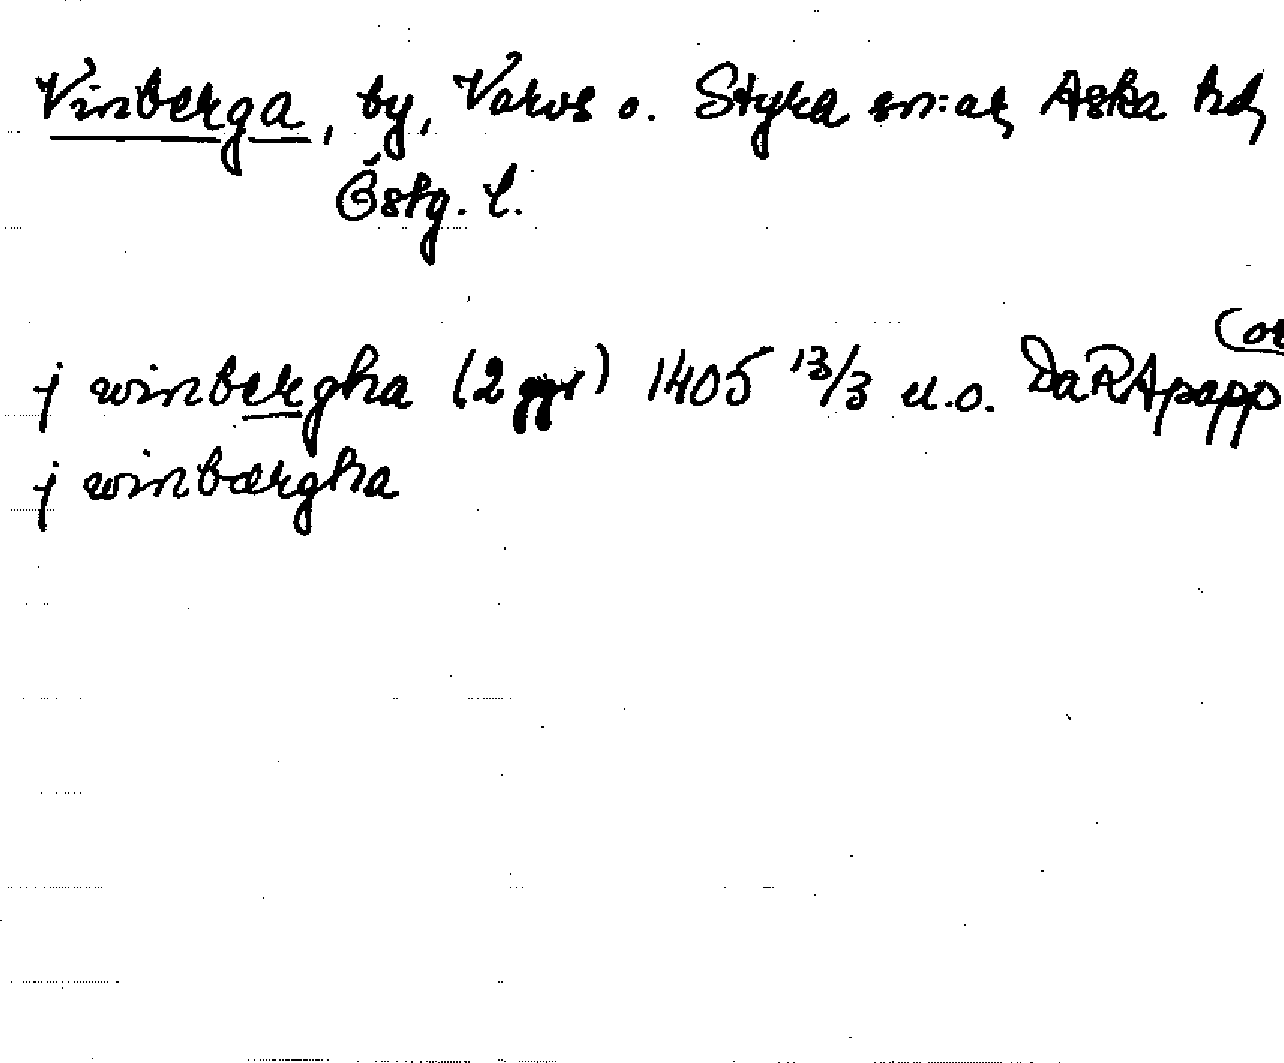 Vinberga, by, Varvs o. Styra sn:ar, Aska hd,
Östg. l.
j winbergha (2 ggr) 1405 13/3 u.o. DaRApapp (or
j winbærgha